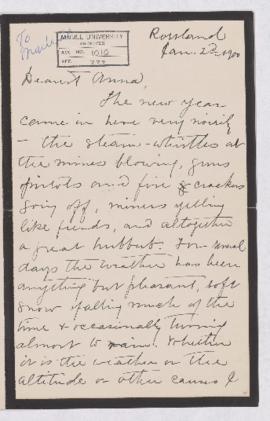 To
McGILL UNIVERSITY
ARCHIVES
ACC. NO. 1010
REF.
Rossland
Jan. 2nd 1900
Dearest Anna,
The new year
came in here very noisily
- the steam-whistles at
the mines blowing, guns
pistols and fire crackers
going off, miners yelling
like fiends, and altogether
a great hubbub. For several
days the weather has been
anything but pleasant, soft
snow falling much of the
time & occasionally turning
almost to rain. Whether
it is the weather or the
altitude or other causes I